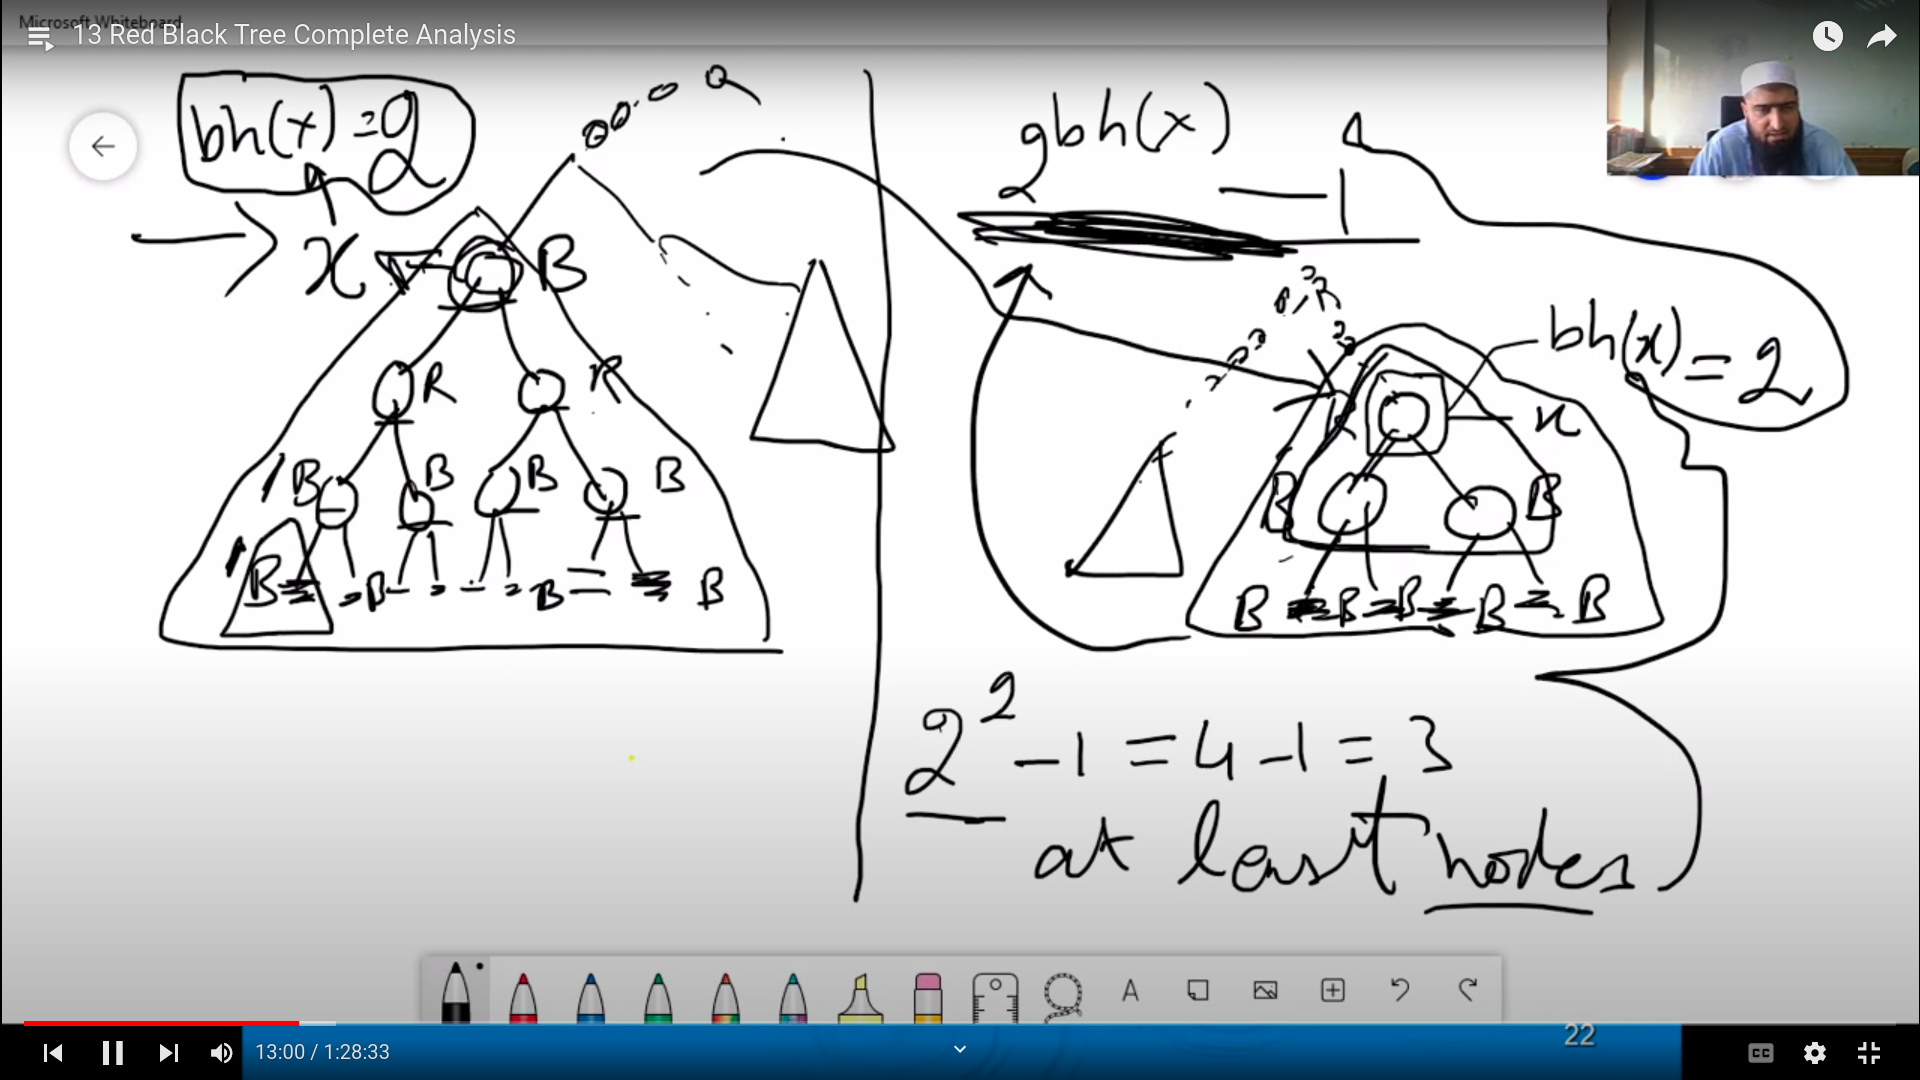 Microsoft Whiteboard
13 Red Black Tree Complete Analysis
bh(x) = 2
x B
R R
B B B B
B B B B
2bh(x) - 1
R
bh(x) = 2
x
B B
B B B B B
2² - 1 = 4 - 1 = 3
at least nodes
A
22
13:00 / 1:28:33
CC